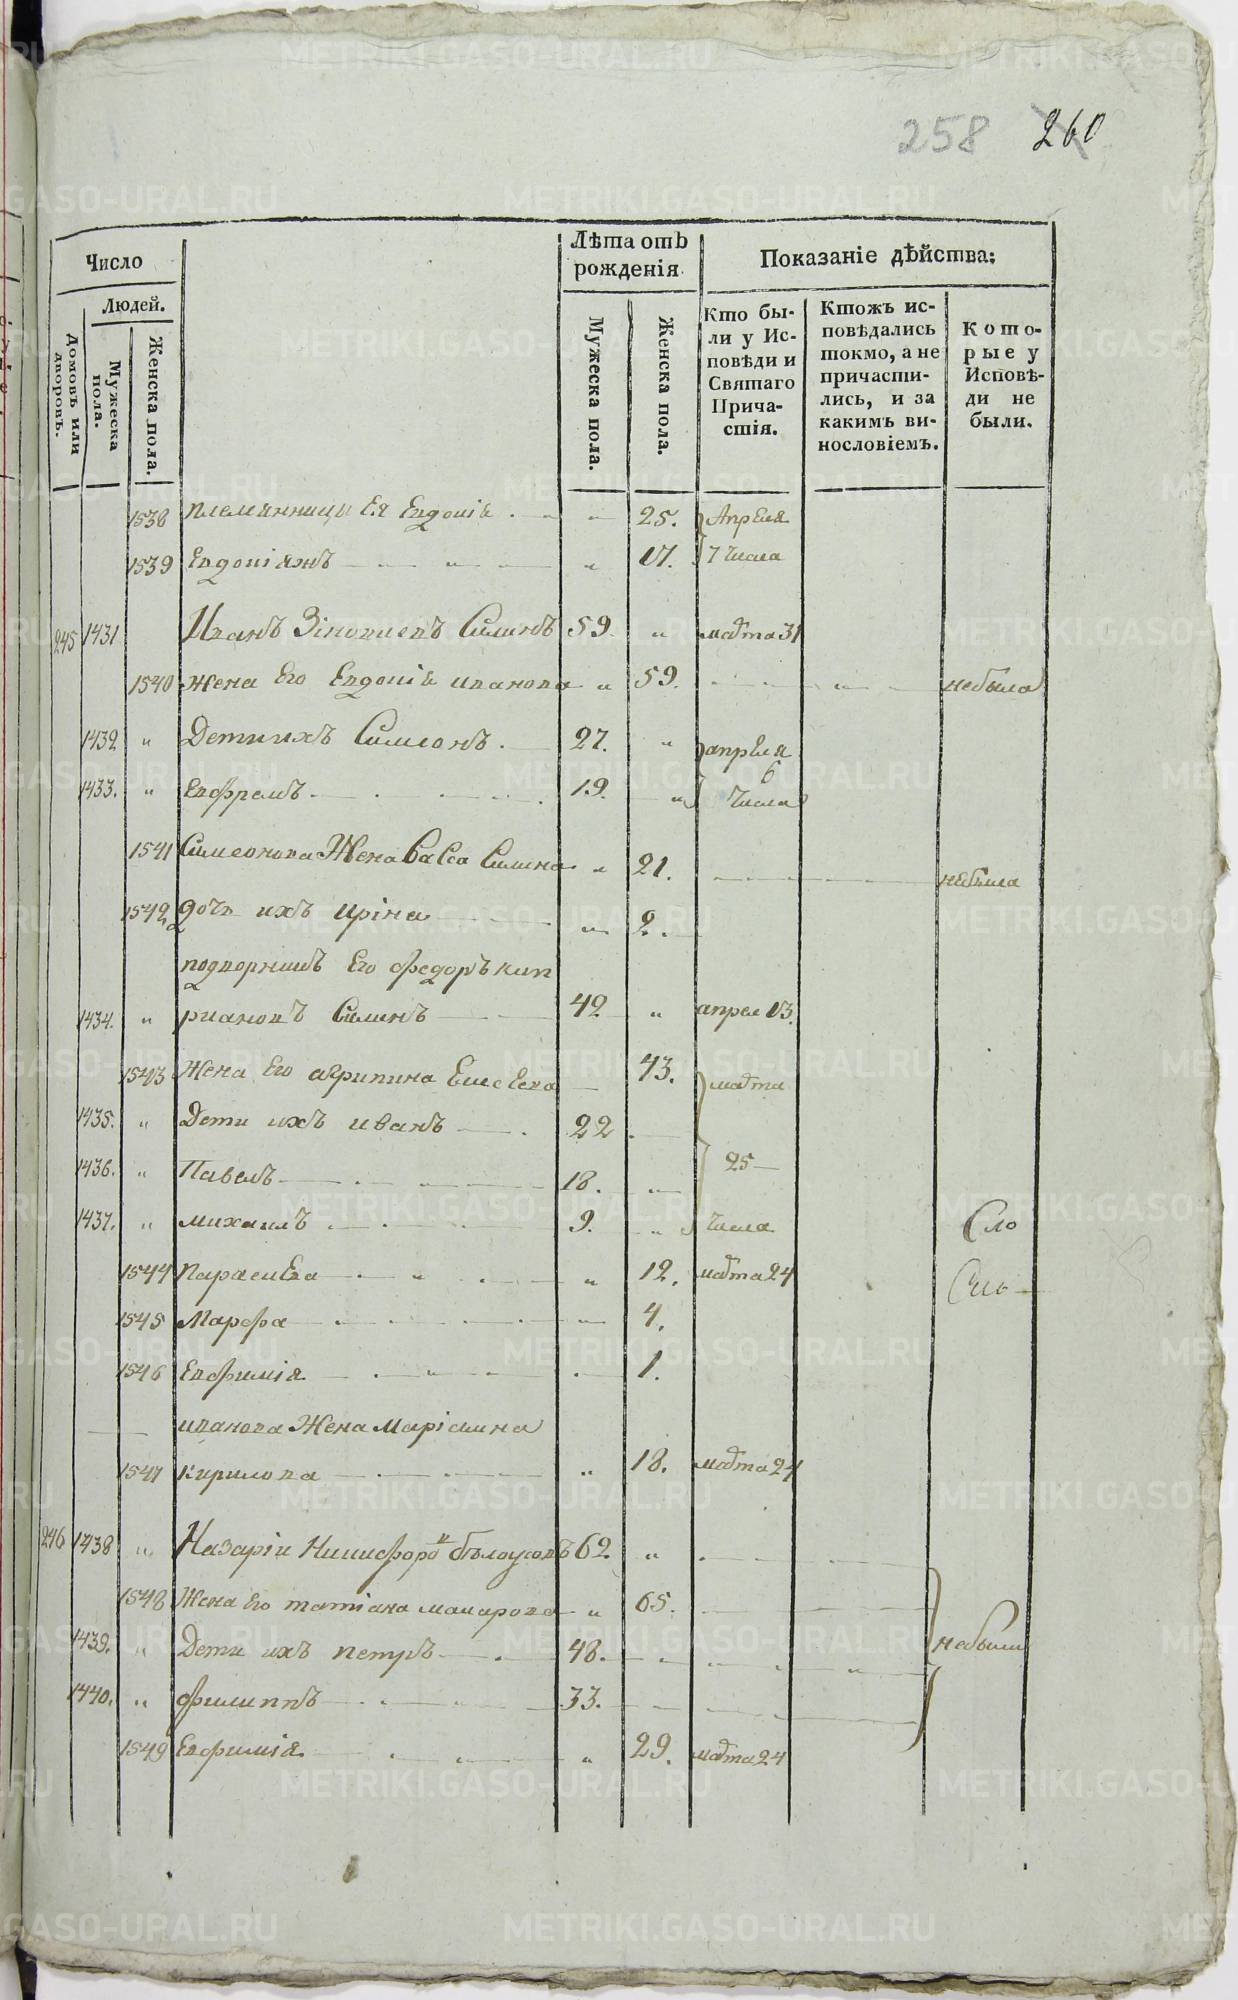 258 260
Число
Людей.
Домовъ или дворовъ.
Мужеска пола.
Женска пола.
Лѣта отъ рожденія
Мужеска пола.
Женска пола.
Показаніе дѣйства:
Кто были у Исповѣди и Святаго Причастія.
Ктожъ исповѣдались токмо, а не причастились, и за какимъ винословіемъ.
Которые у Исповѣди не были.
1538 племянницы Ея Евдокіа 25. Апреля
1539 Евдокіяжъ 17. 7 Числа
245 1431 Иванъ Зіновиевъ Силинъ 59. „ марта 31
1540 жена Его Евдокіа иванова „ 59. небыла
1432 „ Дети ихъ Симеонъ. 27. „ апреля
1433. „ Евфремъ 19. „ 6 Числа
1541 Симеонова Жена Васса Силина „ 21. небыла
1542 дочь ихъ иріна „ 2.
подворникъ Его Федоръ кип
1434. „ риановъ Силинъ 42 „ апрел 13.
1543 Жена Его агрипина Елисеева 43. марта
1435. „ Дети ихъ иванъ 22
1436. „ Павелъ 18. „ 25
1437. „ михаилъ 9. „ числа Сло
1544 параскева „ 12. марта 24
1545 Марфа 4.
1546 Евфимія 1.
иванова Жена Маріамна
1547 кирилова „ 18. марта 24
246 1438 „ Назаріи Никифоровъ бѣлоусовъ 62. „
1548 Жена Его татіана макарова „ 65.
1439. „ Дети ихъ петръ 48. небыли
1440. „ филиппъ 33.
1549 Евфиміа „ 29. марта 24
METRIKI.GASO-URAL.RU